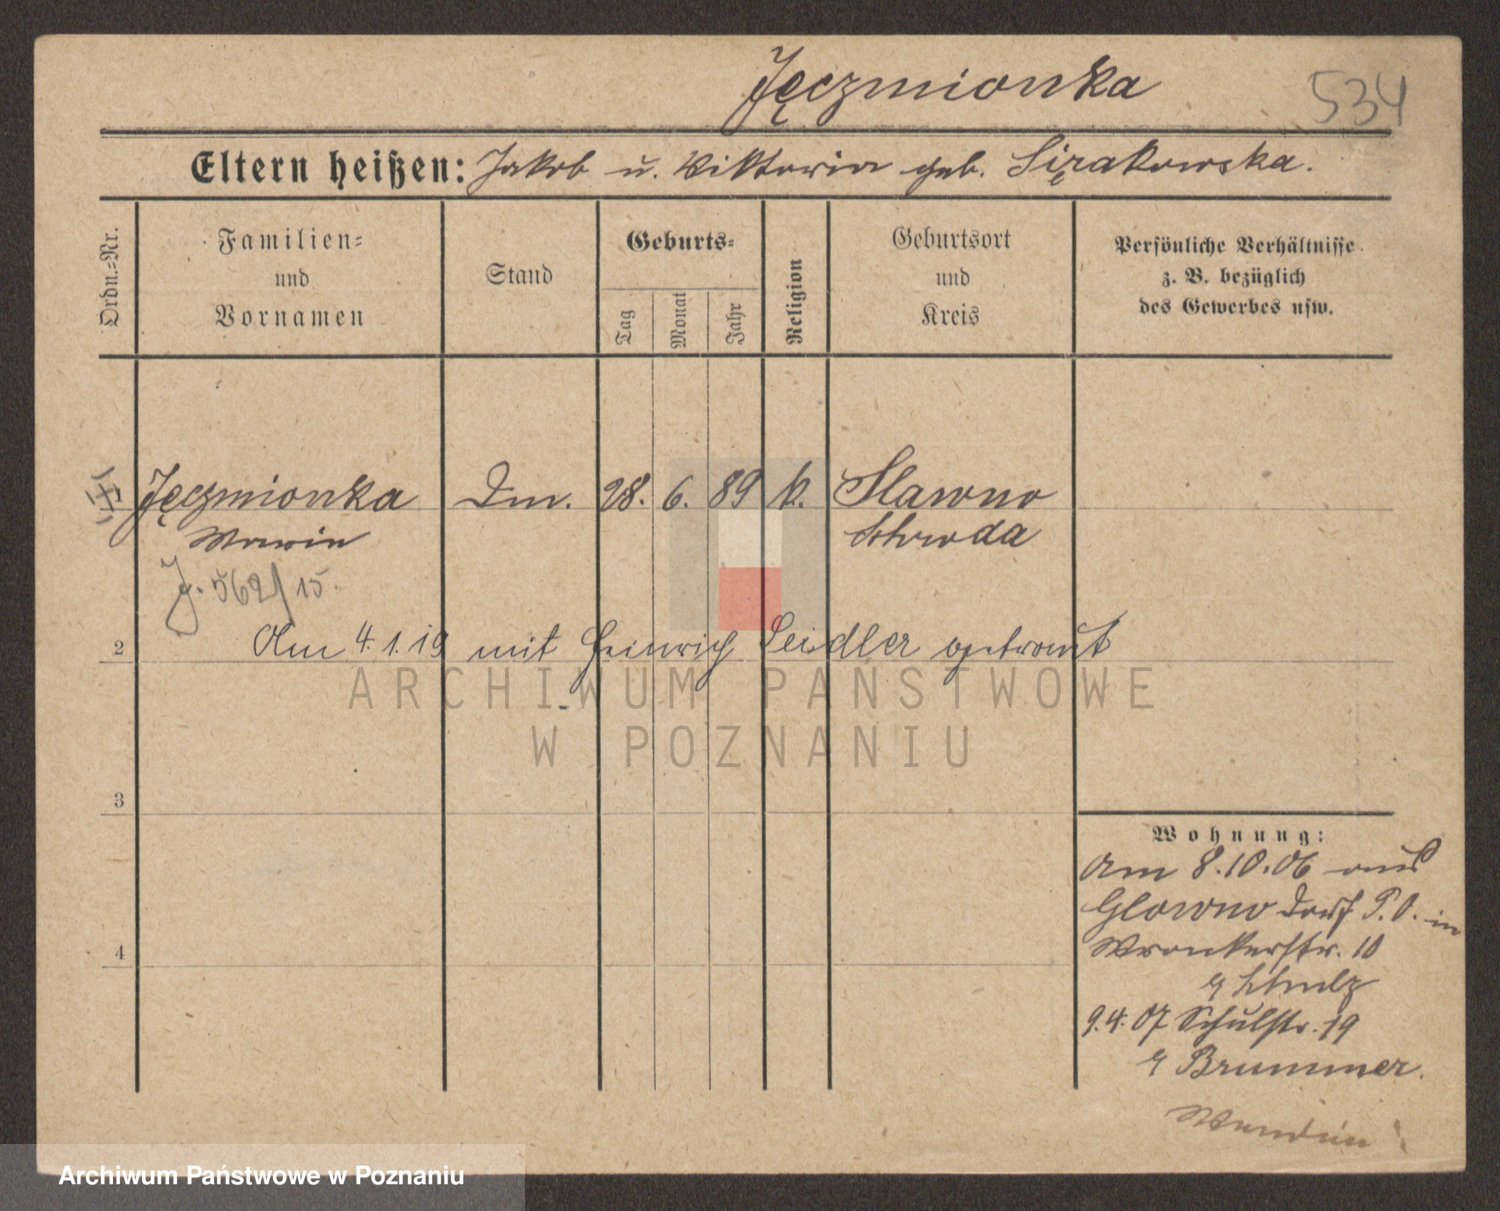 Jęczmionka
534
Eltern heißen: Jakob u. Viktoria geb. Sięrakowska.
Ordn.-Nr.
Familien-
und
Vornamen
Stand
Geburts-
Tag
Monat
Jahr
Religion
Geburtsort
und
Kreis
Persönliche Verhältnisse
z. B. bezüglich
des Gewerbes usw.
1 Jęczmionka Dm. 28. 6. 89 k. Slawno
Maria Schroda
J. 562/15.
2 Am 4.1.19 mit Heinrich Seidler getraut
ARCHIWUM PAŃSTWOWE
W POZNANIU
3
Wohnung:
Am 8.10.06 aus
Glowno Dorf P.O. in
Wronkerstr. 10
Schulz
4
9.4.07 Schulstr. 19
Brummer.
Archiwum Państwowe w Poznaniu